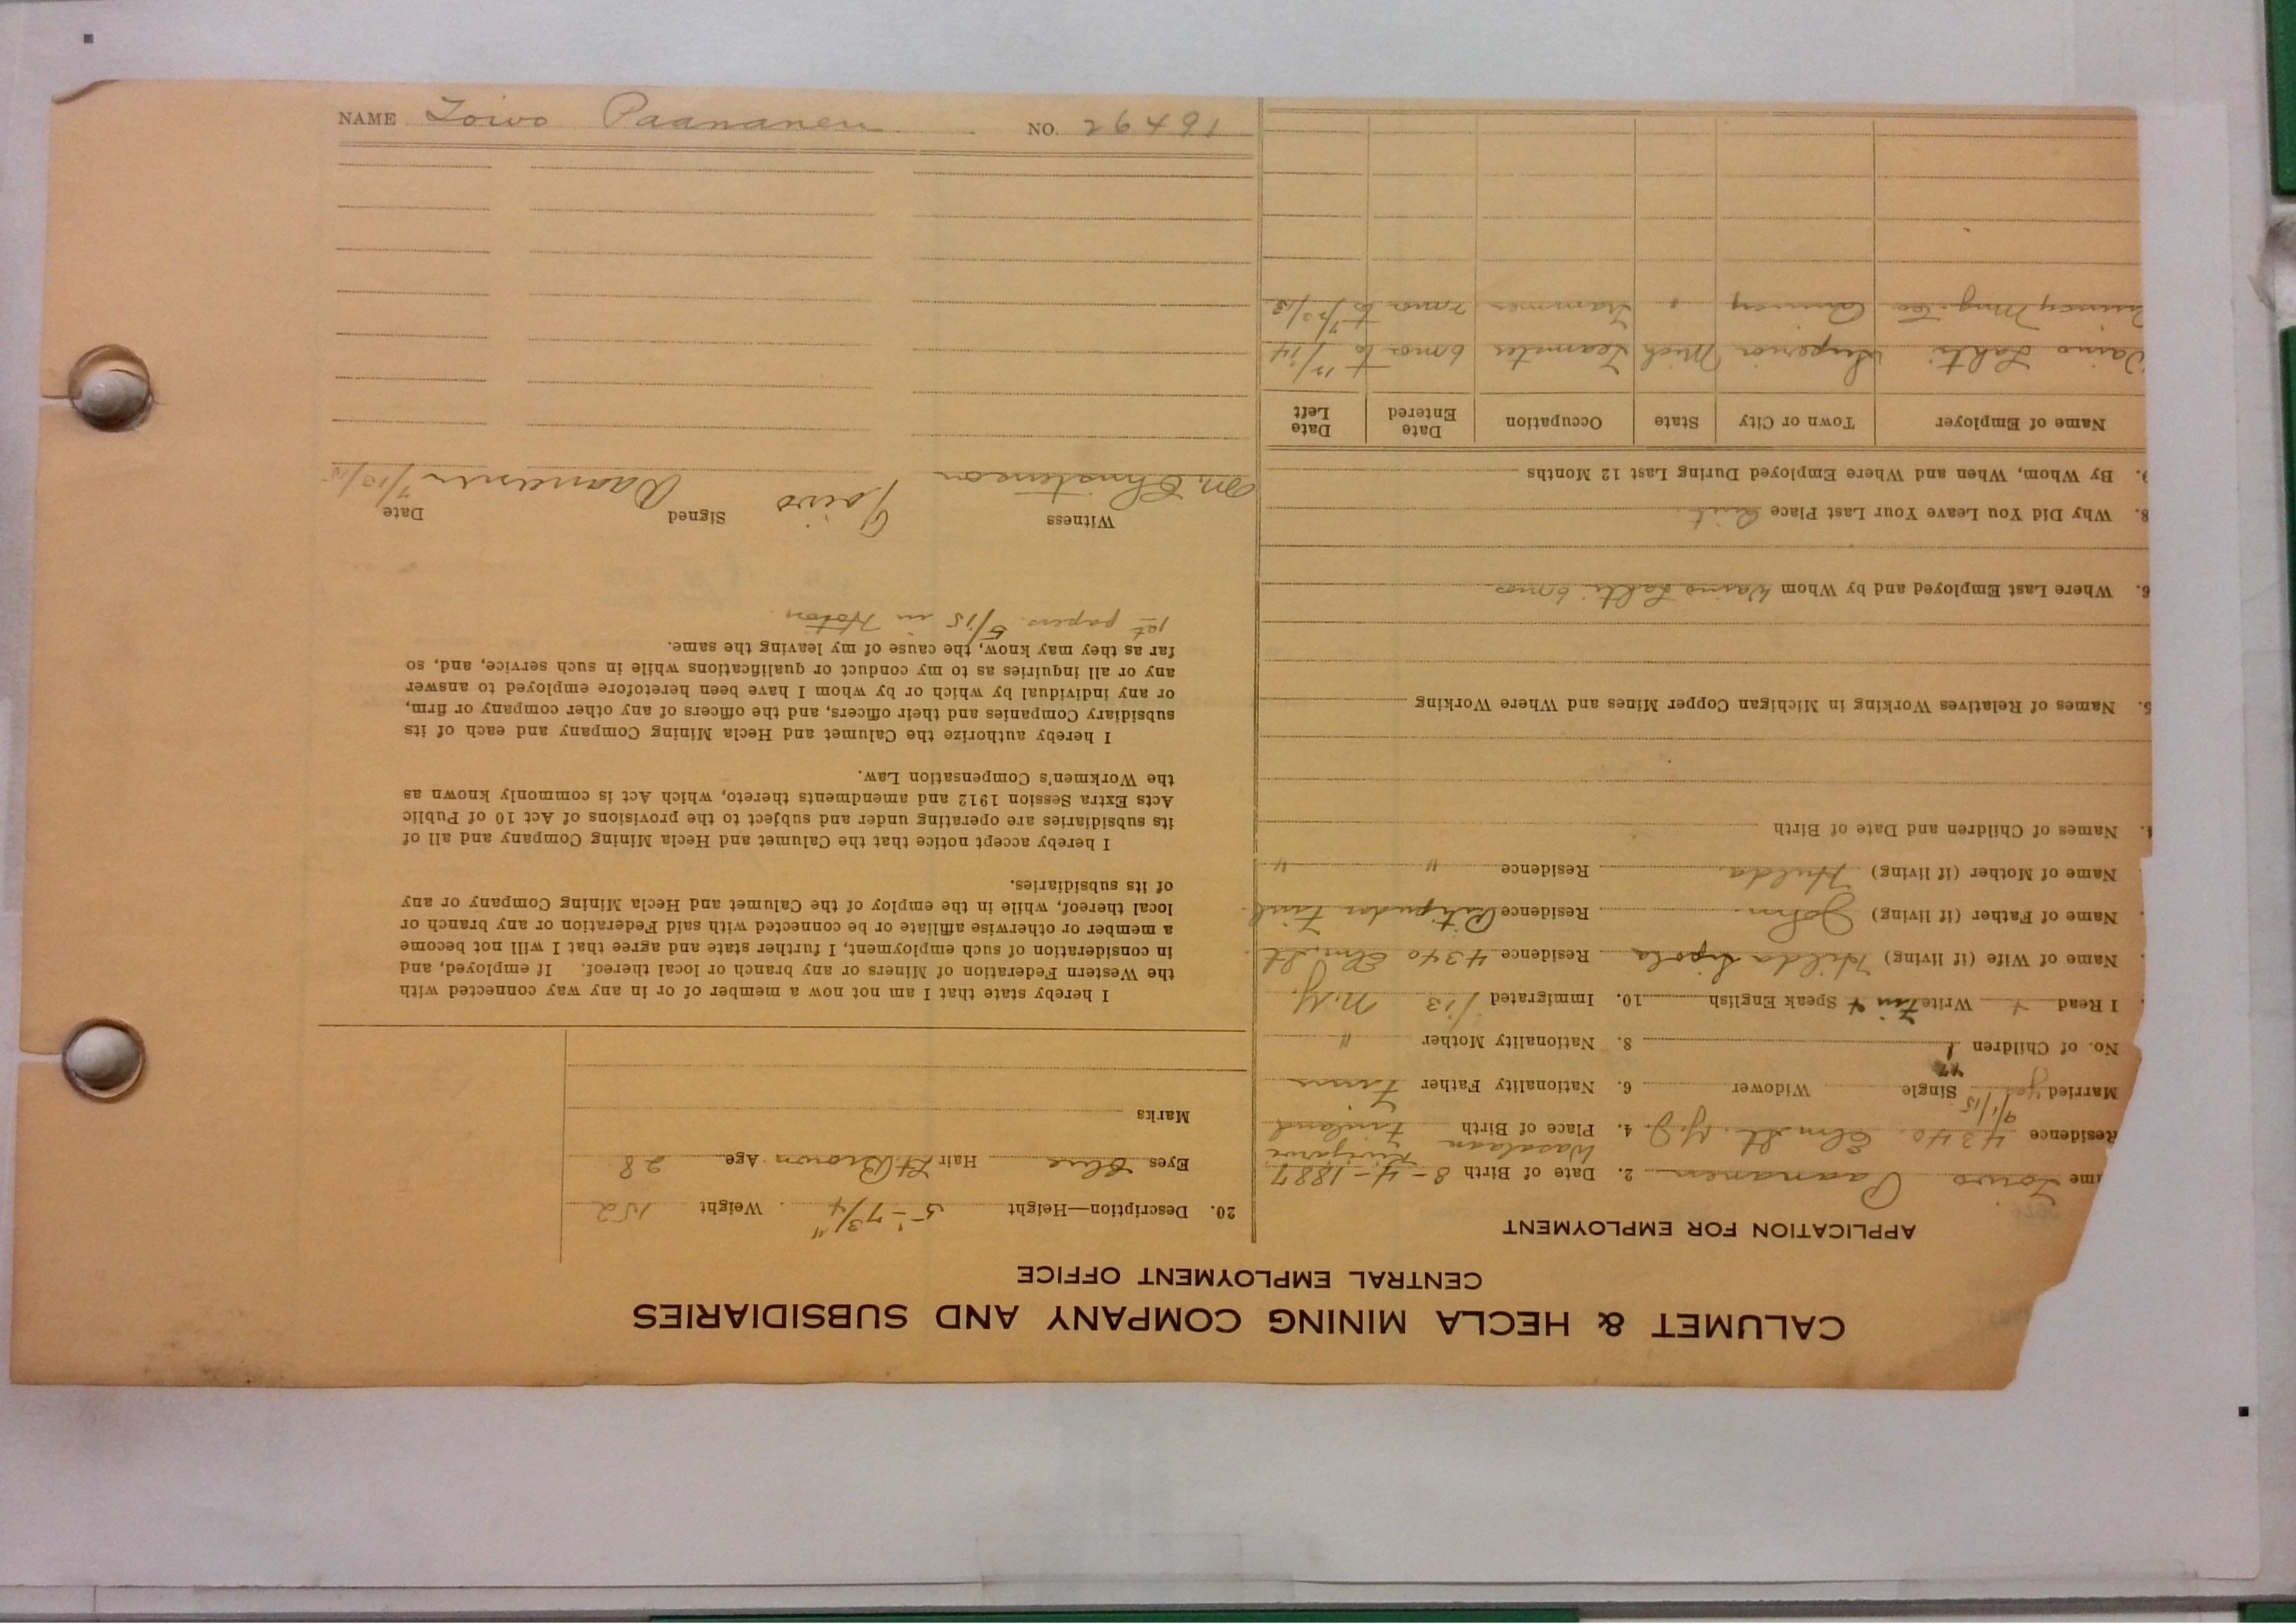 CALUMET & HECLA MINING COMPANY AND SUBSIDIARIES
CENTRAL EMPLOYMENT OFFICE
APPLICATION FOR EMPLOYMENT
ame Toivo Paananen 2. Date of Birth 8-4-1887
Residence 4340 Elm St. Y.J. 4. Place of Birth Finland
9/1/15
Married yes Single Widower 6. Nationality Father Finns
No. of Children 1 8. Nationality Mother "
I Read + Write Fin + Speak English 10. Immigrated /13 N.Y.
Name of Wife (if living) Hilda Residence 4340 Elm St
Name of Father (if living) John Residence Finl
Name of Mother (if living) Hulda Residence " "
4. Names of Children and Date of Birth
5. Names of Relatives Working in Michigan Copper Mines and Where Working
6. Where Last Employed and by Whom Waino Lahti 6 mos
8. Why Did You Leave Your Last Place Quit
9. By Whom, When and Where Employed During Last 12 Months
Name of Employer Town or City State Occupation Date Entered Date Left
Waino Lahti Superior Mich Teamster 6 mos to
Quincy Mng. Co Quincy " Trammer mos to 7/23/13
20. Description—Height 5'-7 3/4" Weight 152
Eyes Blue Hair Lt Brown Age 28
Marks
I hereby state that I am not now a member of or in any way connected with
the Western Federation of Miners or any branch or local thereof. If employed, and
in consideration of such employment, I further state and agree that I will not become
a member or otherwise affiliate or be connected with said Federation or any branch or
local thereof, while in the employ of the Calumet and Hecla Mining Company or any
of its subsidiaries.
I hereby accept notice that the Calumet and Hecla Mining Company and all of
its subsidiaries are operating under and subject to the provisions of Act 10 of Public
Acts Extra Session 1912 and amendments thereto, which Act is commonly known as
the Workmen's Compensation Law.
I hereby authorize the Calumet and Hecla Mining Company and each of its
subsidiary Companies and their officers, and the officers of any other company or firm,
or any individual by which or by whom I have been heretofore employed to answer
any or all inquiries as to my conduct or qualifications while in such service, and, so
far as they may know, the cause of my leaving the same.
1st papers 5/15 in Hoton
Witness Signed Date
M. Christenson Toivo Paananen 7/13/15
NAME Toivo Paananen NO. 26491